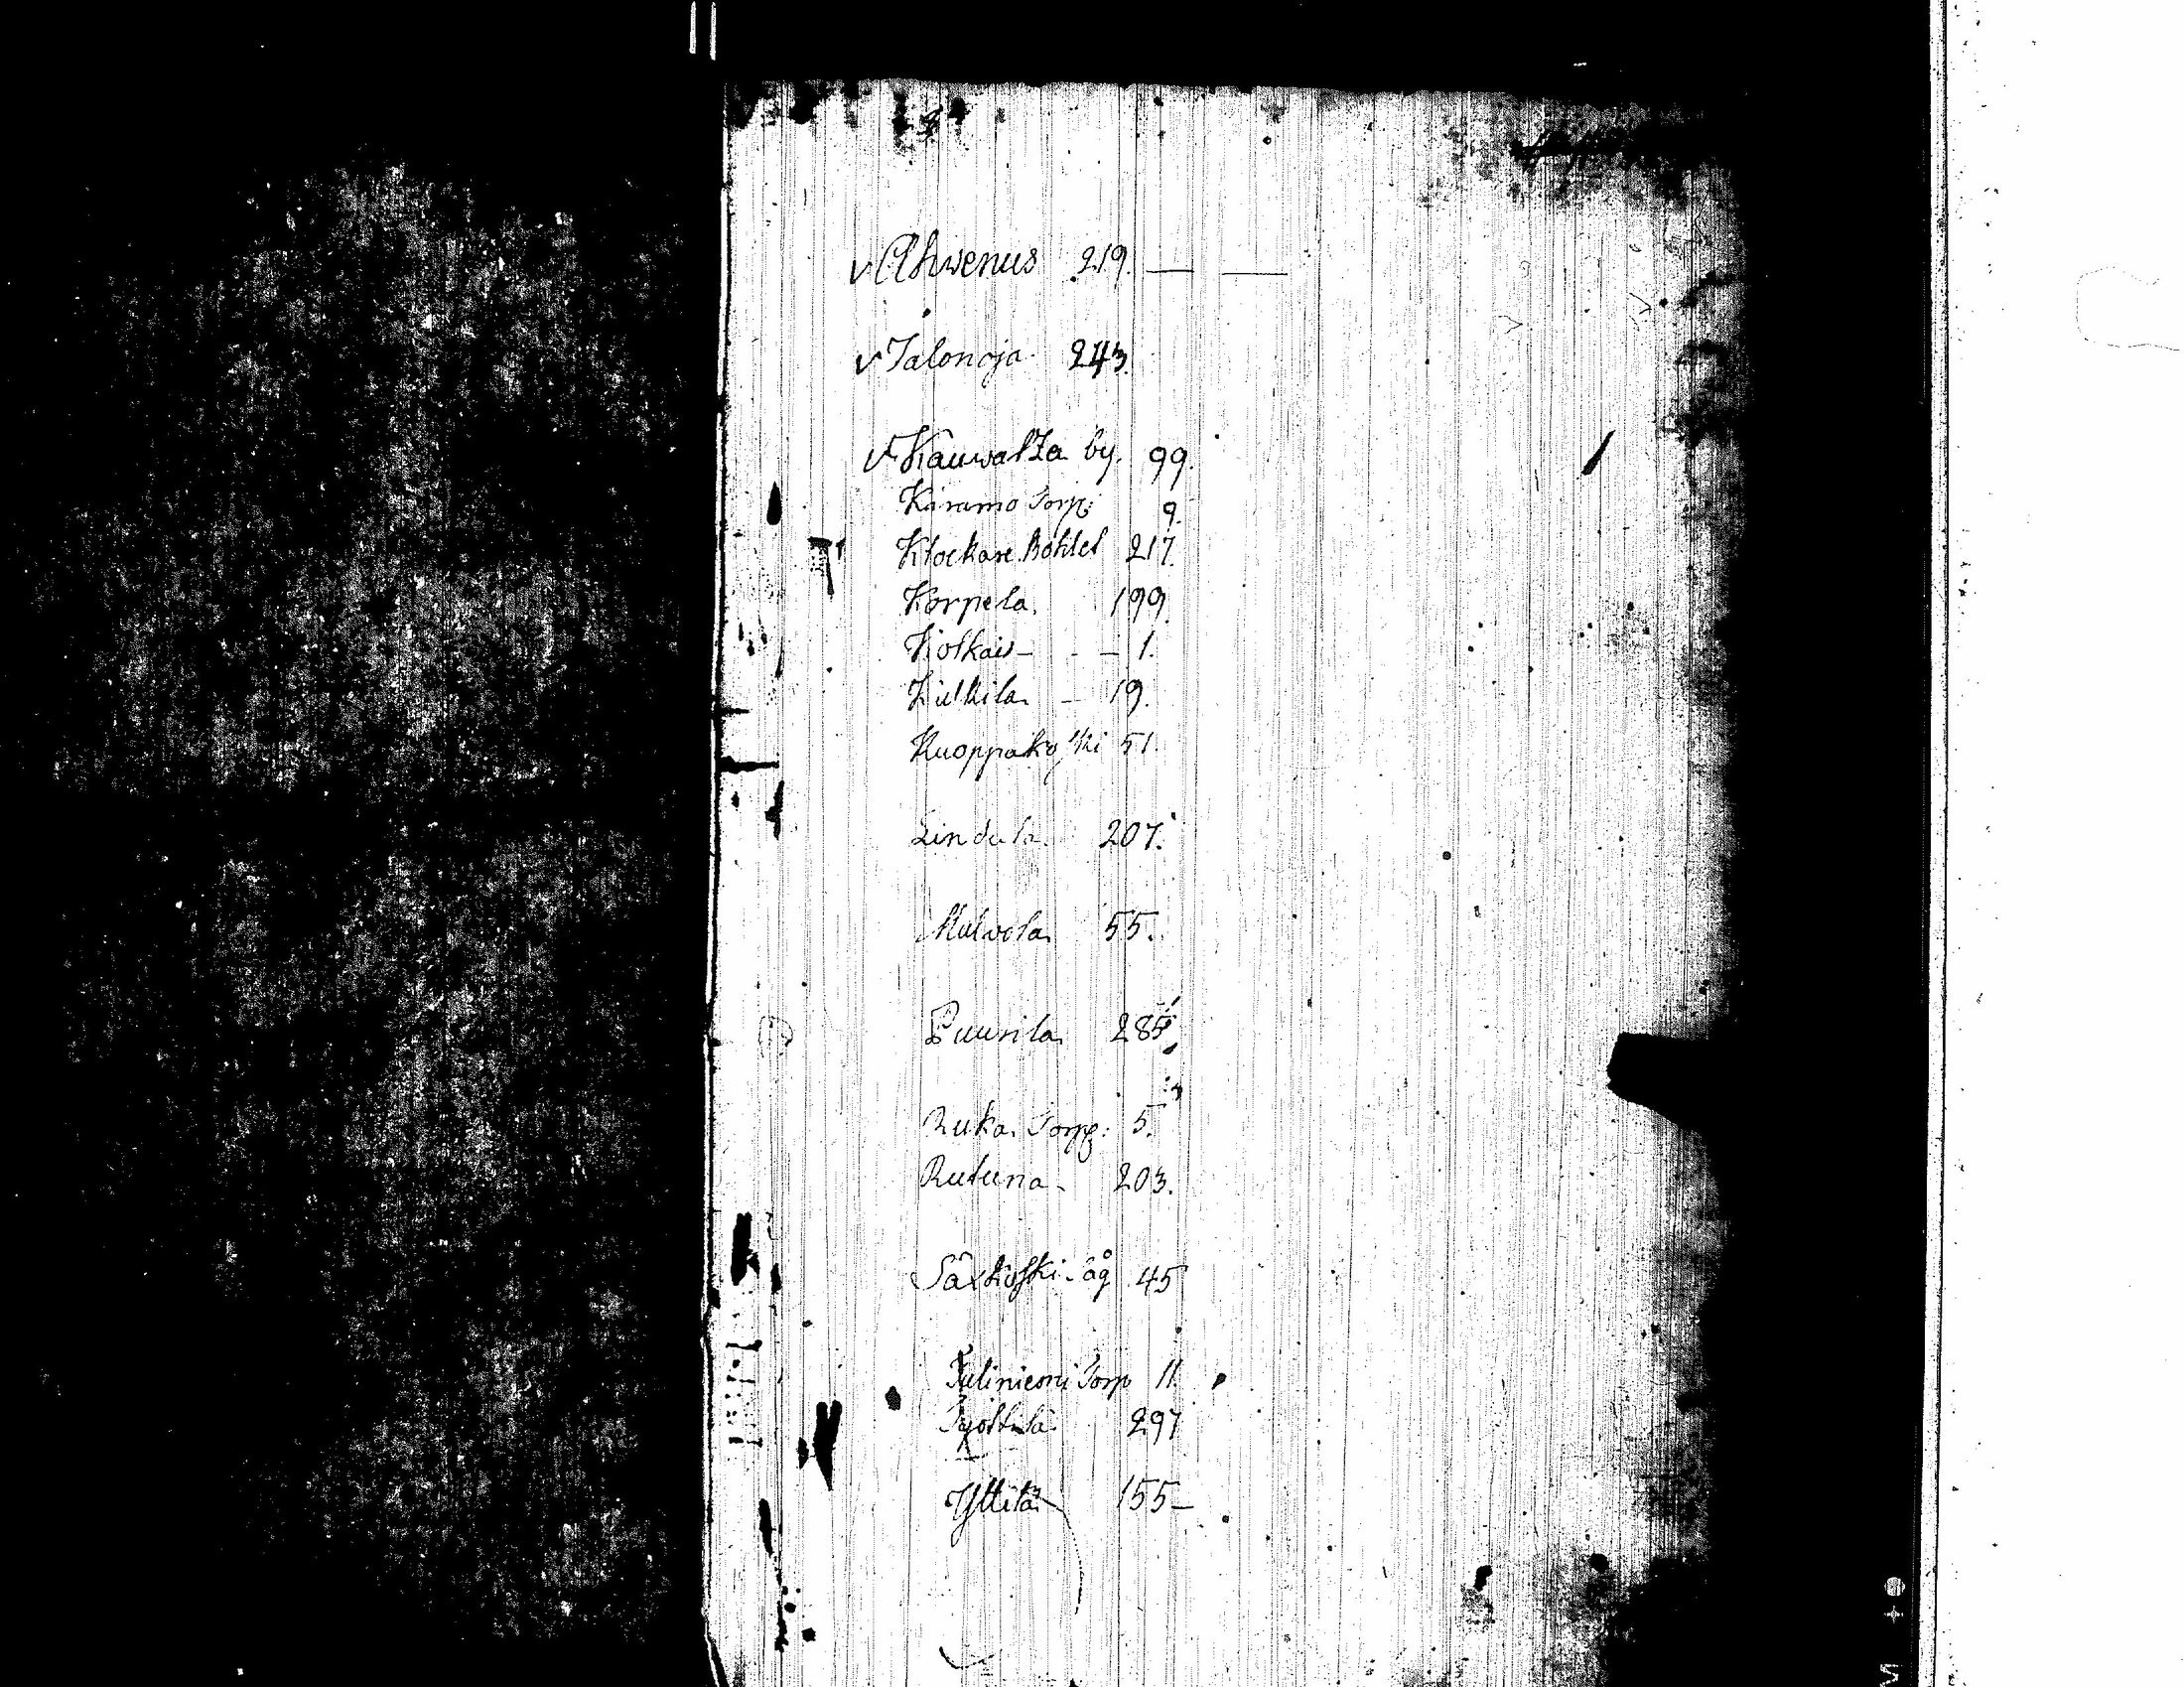 v Ahwenus 219. — —
v Jalonoja 243.
v Kauwatza by. 99.
Kiramo Torp: 9.
Klockare Bohlet 217.
Korpela. 199.
Kolkais - - - 1.
Kulkila - 19.
Kuoppakoski 51.
Lindula. 207.
Mulvola 55.
Puurila 285
Ruka Torp: 5.
Rutuna. 203.
Säxkoski åg 45
Torp 11
Tyoltilä 297
Yttilä 155 –